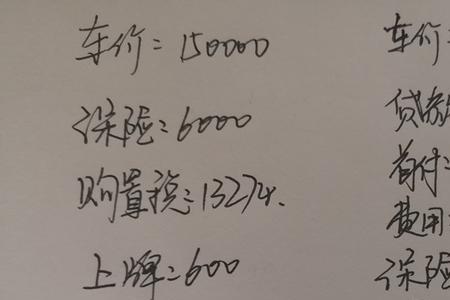 车价=150000
保险=6000
购置税=13274.
上牌=600
车价=
贷款
首付=
费用
保险